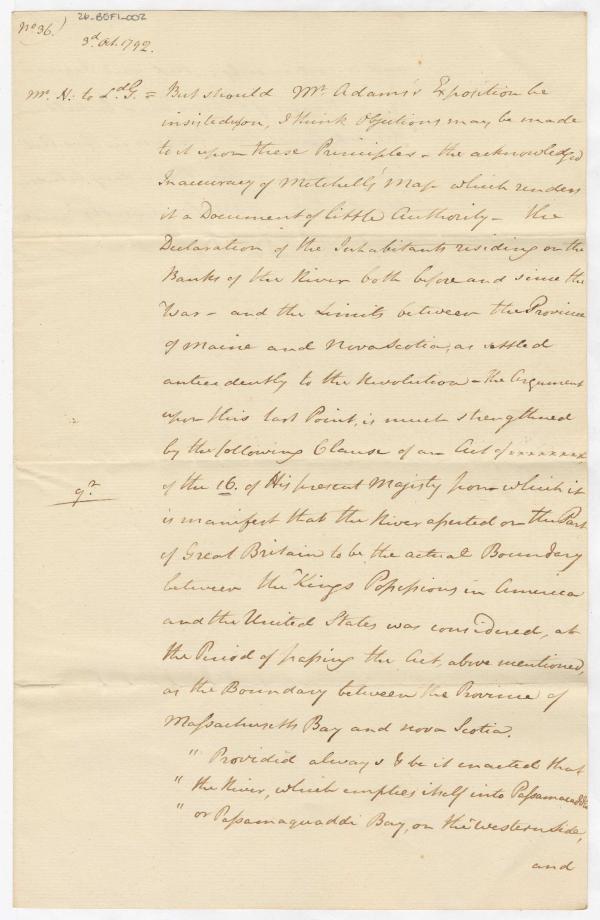 26-BDF1-002
(No 36.)
3d. Oct. 1792.
Mr. H. to Ld. G. = But should Mr. Adams's Exposition be
insisted on, I think Objections may be made
to it upon these Principles - the acknowledged
Inaccuracy of Mitchell's Map which renders
it a Document of little Authority - the
Declaration of the Inhabitants residing on the
Banks of the River both before and since the
War - and the Limits between the Province
of Maine and Nova Scotia, as settled
antecedently to the Revolution - the Argument
upon this last Point, is much strengthened
by the following Clause of an Act of xxxxxxxx
qr. of the 16. of His present Majesty from which it
is manifest that the River asserted on the Part
of Great Britain to be the actual Boundary
between the Kings Possessions in America
and the United States was considered, at
the Period of passing the Act, above mentioned,
as the Boundary between the Province of
Massachusetts Bay and Nova Scotia.
" Provided always & be it enacted that
" the River, which empties itself into
" or Passamaquaddi Bay, on the Western Side,
and